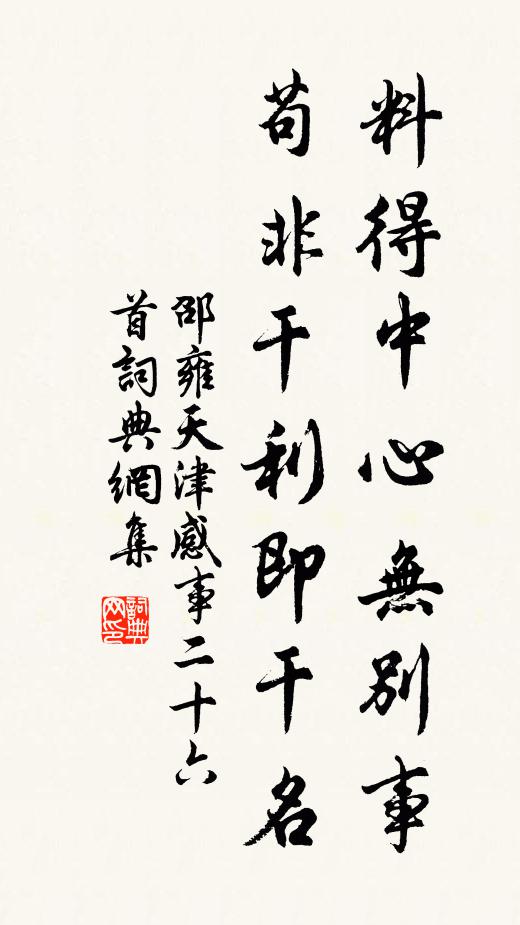 料得中心無別事
苟非干利即干名
邵雍天津感事二十六
首詞典網集
詞典网印